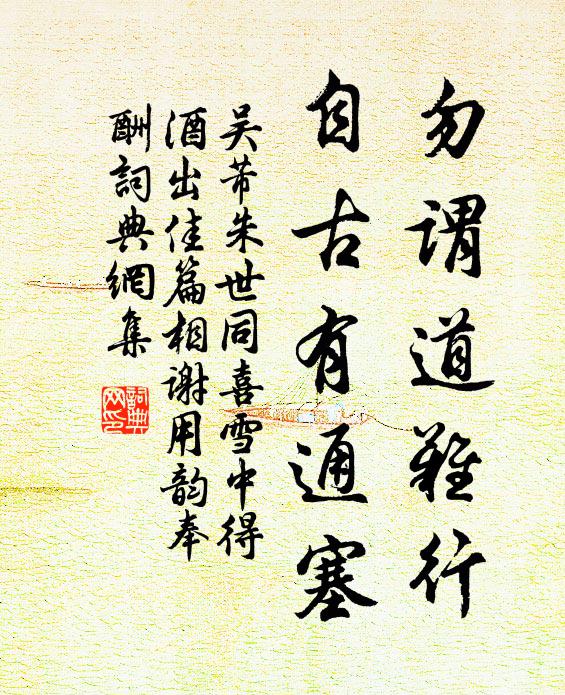 勿谓道难行
自古有通塞
吴芾朱世同喜雪中得
酒出佳篇相谢用韵奉
酬词典网集
词典网印